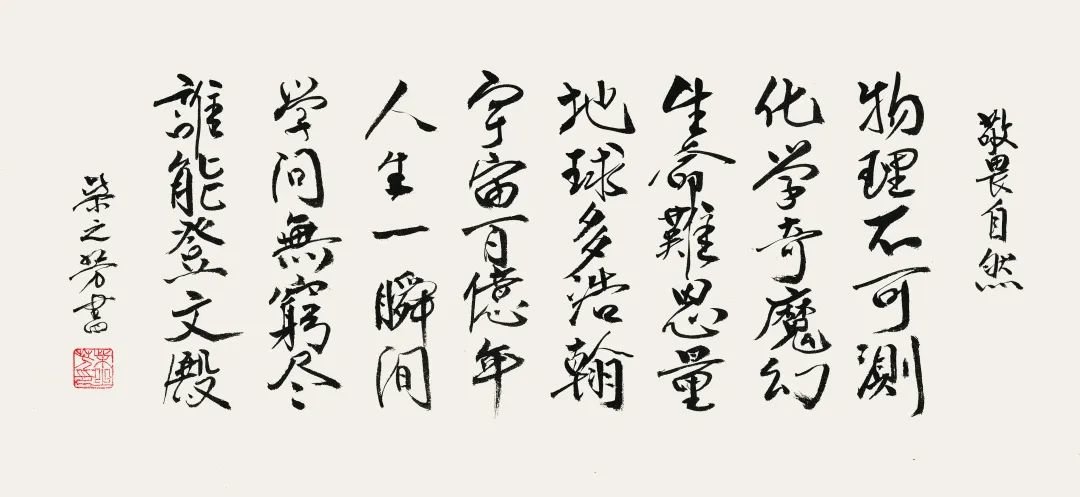 敬畏自然
物理不可測
化学奇魔幻
生命難思量
地球多浩翰
宇宙百億年
人生一瞬间
学问無窮尽
誰能登文殿
柴之芳書